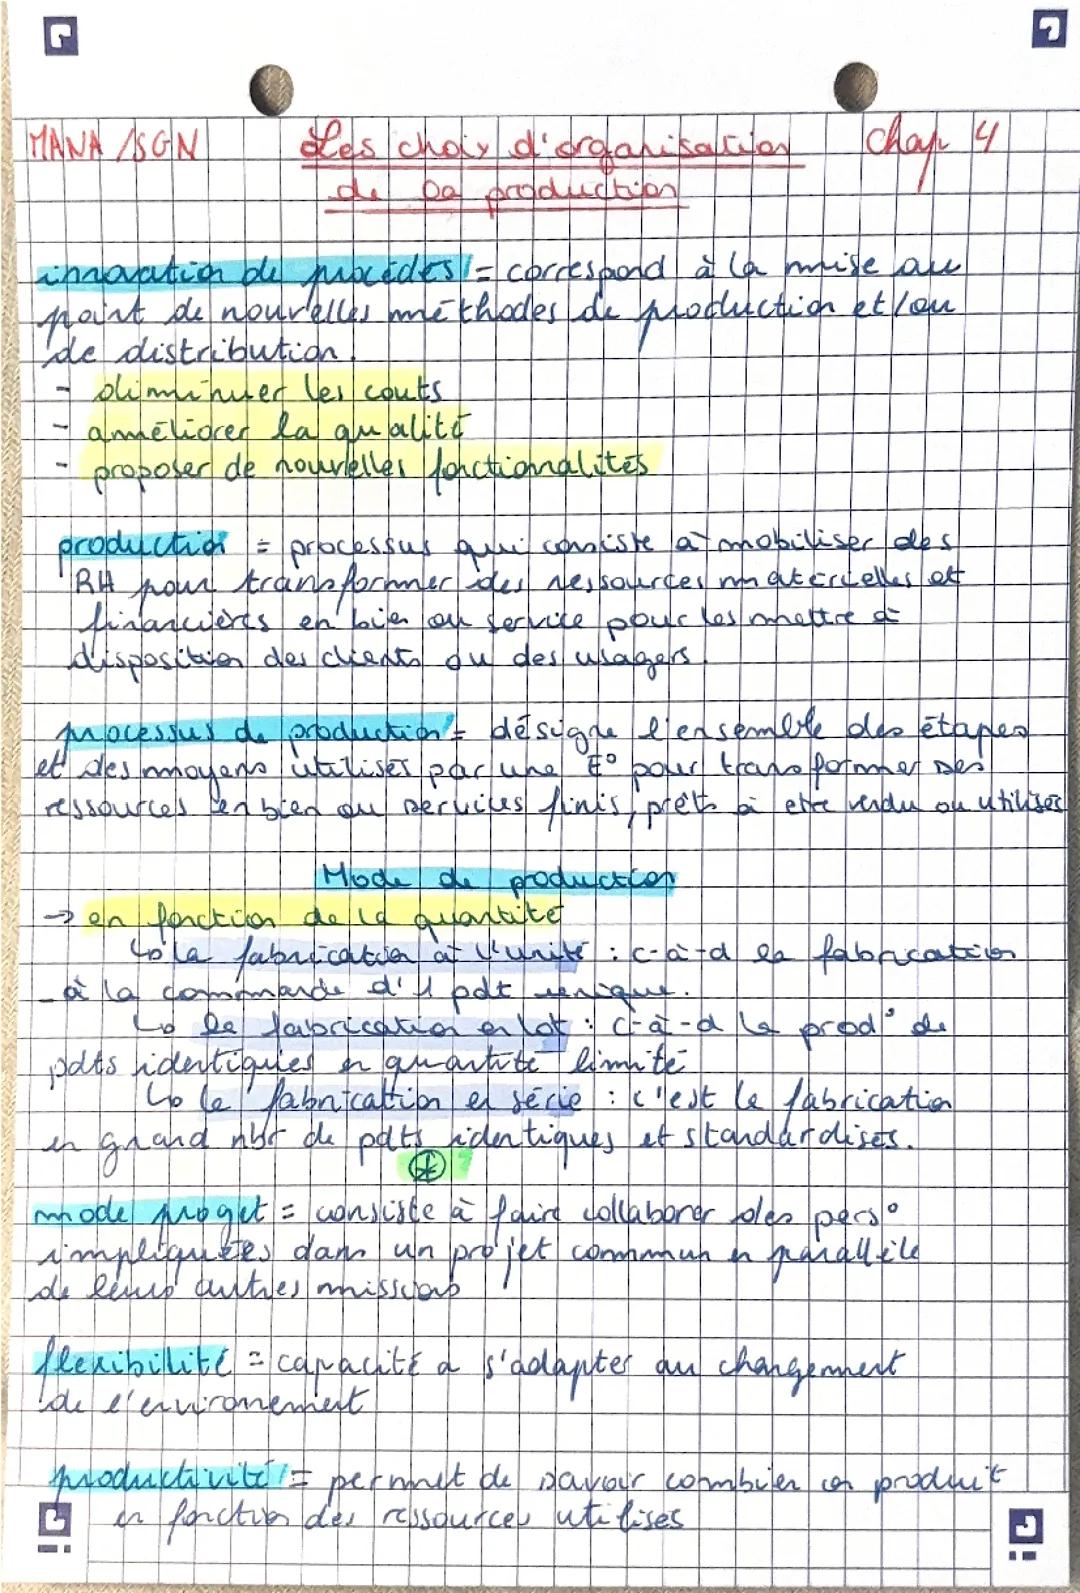 MANA /SGN Les choix d'organisation Chap 4
de la production
innovation de procédés = correspond à la mise au
point de nouvelles méthodes de production et/ou
de distribution.
- diminuer les couts
- améliorer la qualité
- proposer de nouvelles fonctionnalités
production = processus qui consiste à mobiliser des
RH pour transformer des ressources materielles et
financières en bien ou service pour les mettre à
disposition des clients ou des usagers.
processus de production = désigne l'ensemble des étapes
et des moyens utilisés par une E° pour transformer ses
ressources en bien ou services finis, prêts à etre vendu ou utilisés
Mode de production
→ en fonction de la quantité
↳ la fabrication à l'unité : c-à-d la fabrication
à la commande d'1 pdt unique.
↳ la fabrication en lot : c-à-d la prod° de
pdts identiques en quantité limité
↳ la fabrication en série : c'est la fabrication
en grand nbr de pdts identiques et standardisés.
mode proget = consiste à faire collaborer des pers°
impliquées dans un projet commun en parallèle
de leurs autres missions
flexibilité = capacité a s'adapter au changement
de l'environement
productivité = permet de savoir combien on produit
en fonction des ressources utilisés